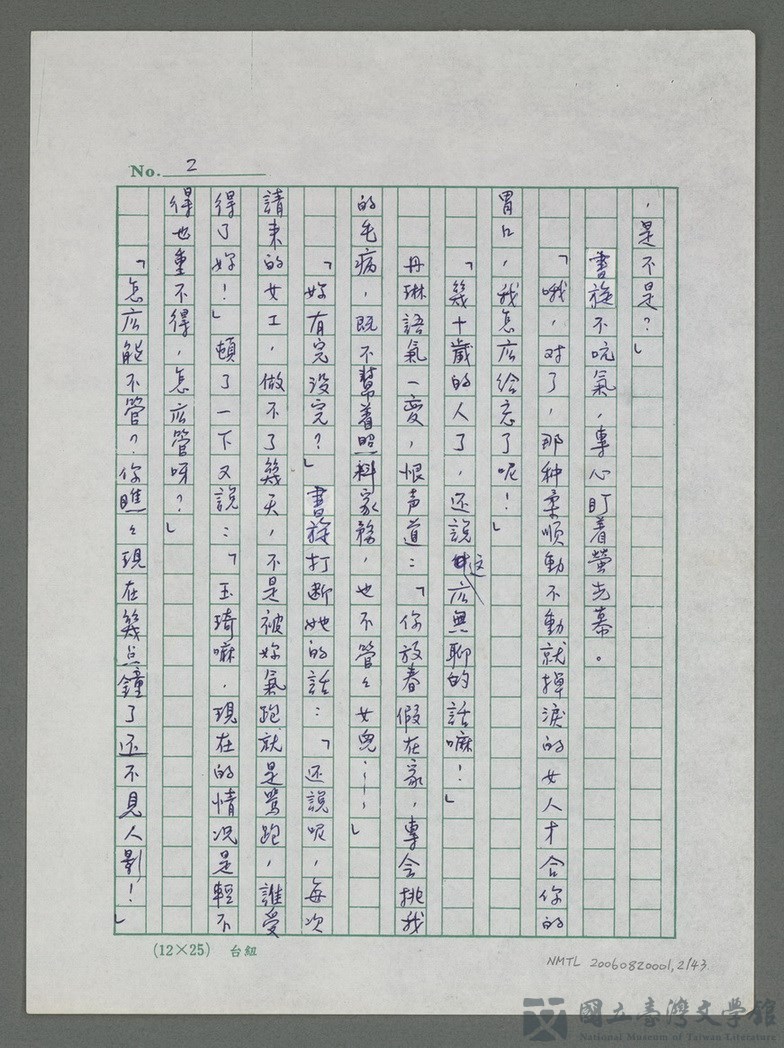 No. 2
，是不是？」
書旋不吭氣，專心盯着螢光幕。
「哦，对了，那种柔順動不動就掉淚的女人才合你的
胃口，我怎庅给忘了呢！」
「幾十歲的人了，还說这庅無聊的話嘛！」
丹琳語氣一变，恨声道：「你放春假在家，專会挑我
的毛病，既不幫着照料家務，也不管々女兒……」
「妳有完没完？」書旋打断她的話：「还說呢，每次
請来的女工，做不了幾天，不是被妳氣跑就是罵跑，誰受
得了妳！」頓了一下又說：「玉琦嘛，現在的情况是輕不
得也重不得，怎庅管呀？」
「怎庅能不管？你瞧々現在幾点鐘了还不見人影！」
(12×25) 台組
NMTL 20060820001,2/43
國立臺灣文學館
National Museum of Taiwan Literature